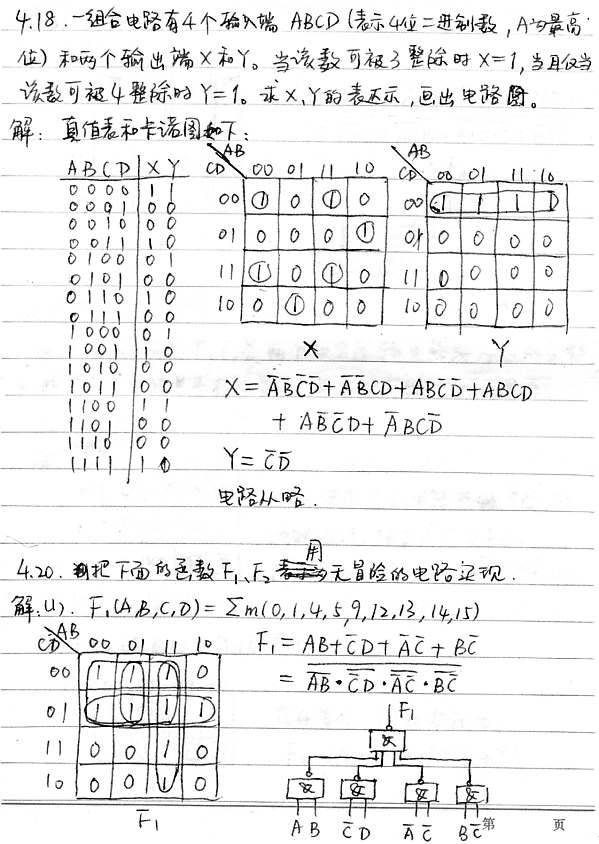 4.18. 一组合电路有4个输入端 ABCD (表示4位二进制数, A为最高
位) 和两个输出端X和Y。当该数可被3整除时X=1, 当且仅当
该数可被4整除时Y=1。求X、Y的表达示, 画出电路图。
解: 真值表和卡诺图如下:
A B C D X Y
0 0 0 0 1 1
0 0 0 1 0 0
0 0 1 0 0 0
0 0 1 1 1 0
0 1 0 0 0 1
0 1 0 1 0 0
0 1 1 0 1 0
0 1 1 1 0 0
1 0 0 0 0 1
1 0 0 1 1 0
1 0 1 0 0 0
1 0 1 1 0 0
1 1 0 0 1 1
1 1 0 1 0 0
1 1 1 0 0 0
1 1 1 1 1 0
AB
CD 00 01 11 10
00 1 0 1 0
01 0 0 0 1
11 1 0 1 0
10 0 1 0 0
X
AB
CD 00 01 11 10
00 1 1 1 1
01 0 0 0 0
11 0 0 0 0
10 0 0 0 0
Y
X = A̅B̅C̅D̅ + A̅B̅CD + ABC̅D̅ + ABCD
+ AB̅C̅D + A̅BCD̅
Y = C̅D̅
电路从略.
4.20. 把下面的函数F₁、F₂用无冒险的电路实现.
解: (1). F₁(A,B,C,D) = Σm(0,1,4,5,9,12,13,14,15)
AB
CD 00 01 11 10
00 1 1 1 0
01 1 1 1 1
11 0 0 1 0
10 0 0 1 0
F₁
F₁ = AB + C̅D + A̅C̅ + BC̅
= AB · C̅D · A̅C̅ · BC̅
F₁
&
& & & &
A B C̅ D A̅ C̅ B C̅
第 页